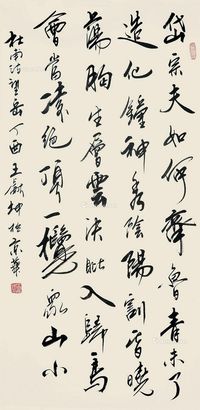 岱宗夫如何齊魯青未了
造化鐘神秀陰陽割昏曉
蕩胸生層雲決眦入歸鳥
會當凌絕頂一覽眾山小
杜甫詩望岳丁酉王獻坤於京華